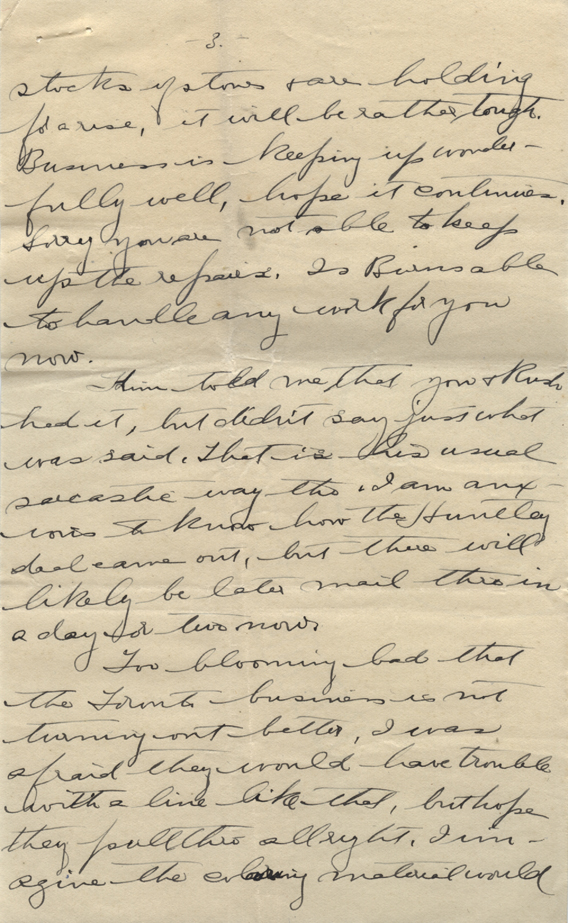 - 3. -
stocks up town & are holding
for a rise, it will be rather tough.
Business is keeping up wonder-
fully well, hope it continues.
Sorry you are not able to keep
up the repairs. Is Burns able
to handle any work for you
now.
told me that you & Rush
had it, but didn't say just what
was said. That is his usual
sarcastic way tho. I am anx-
ious to know how the Huntley
deal came out, but there will
likely be later mail thro in
a day or two now.
Too blooming bad that
the Toronto business is not
turning out better, I was
afraid they would have trouble
with a line like that, but hope
they pull thro allright. I im-
agine the coloring material would